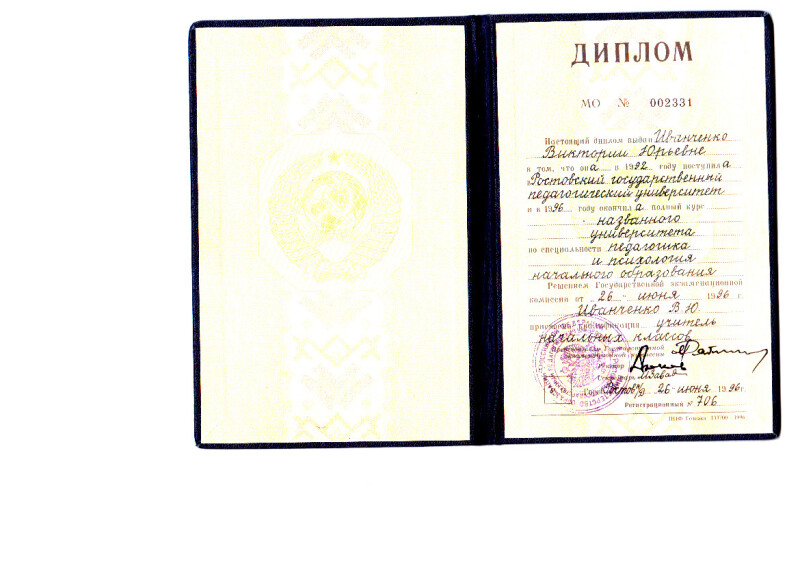 ДИПЛОМ
МО № 002331
Настоящий диплом выдан Иванченко
Виктории Юрьевне
в том, что она в 1992 году поступила
в Ростовский государственный
педагогический университет
и в 1996 году окончила полный курс
названного
университета
по специальности педагогика
и психология
начального образования
Решением Государственной экзаменационной
комиссии от 26 июня 1996 г.
Иванченко В.Ю.
присвоена квалификация учитель
начальных классов
Председатель Государственной
экзаменационной комиссии
Ректор
Секретарь
Город Ростов н/Д 26 июня 1996 г.
Регистрационный № 706